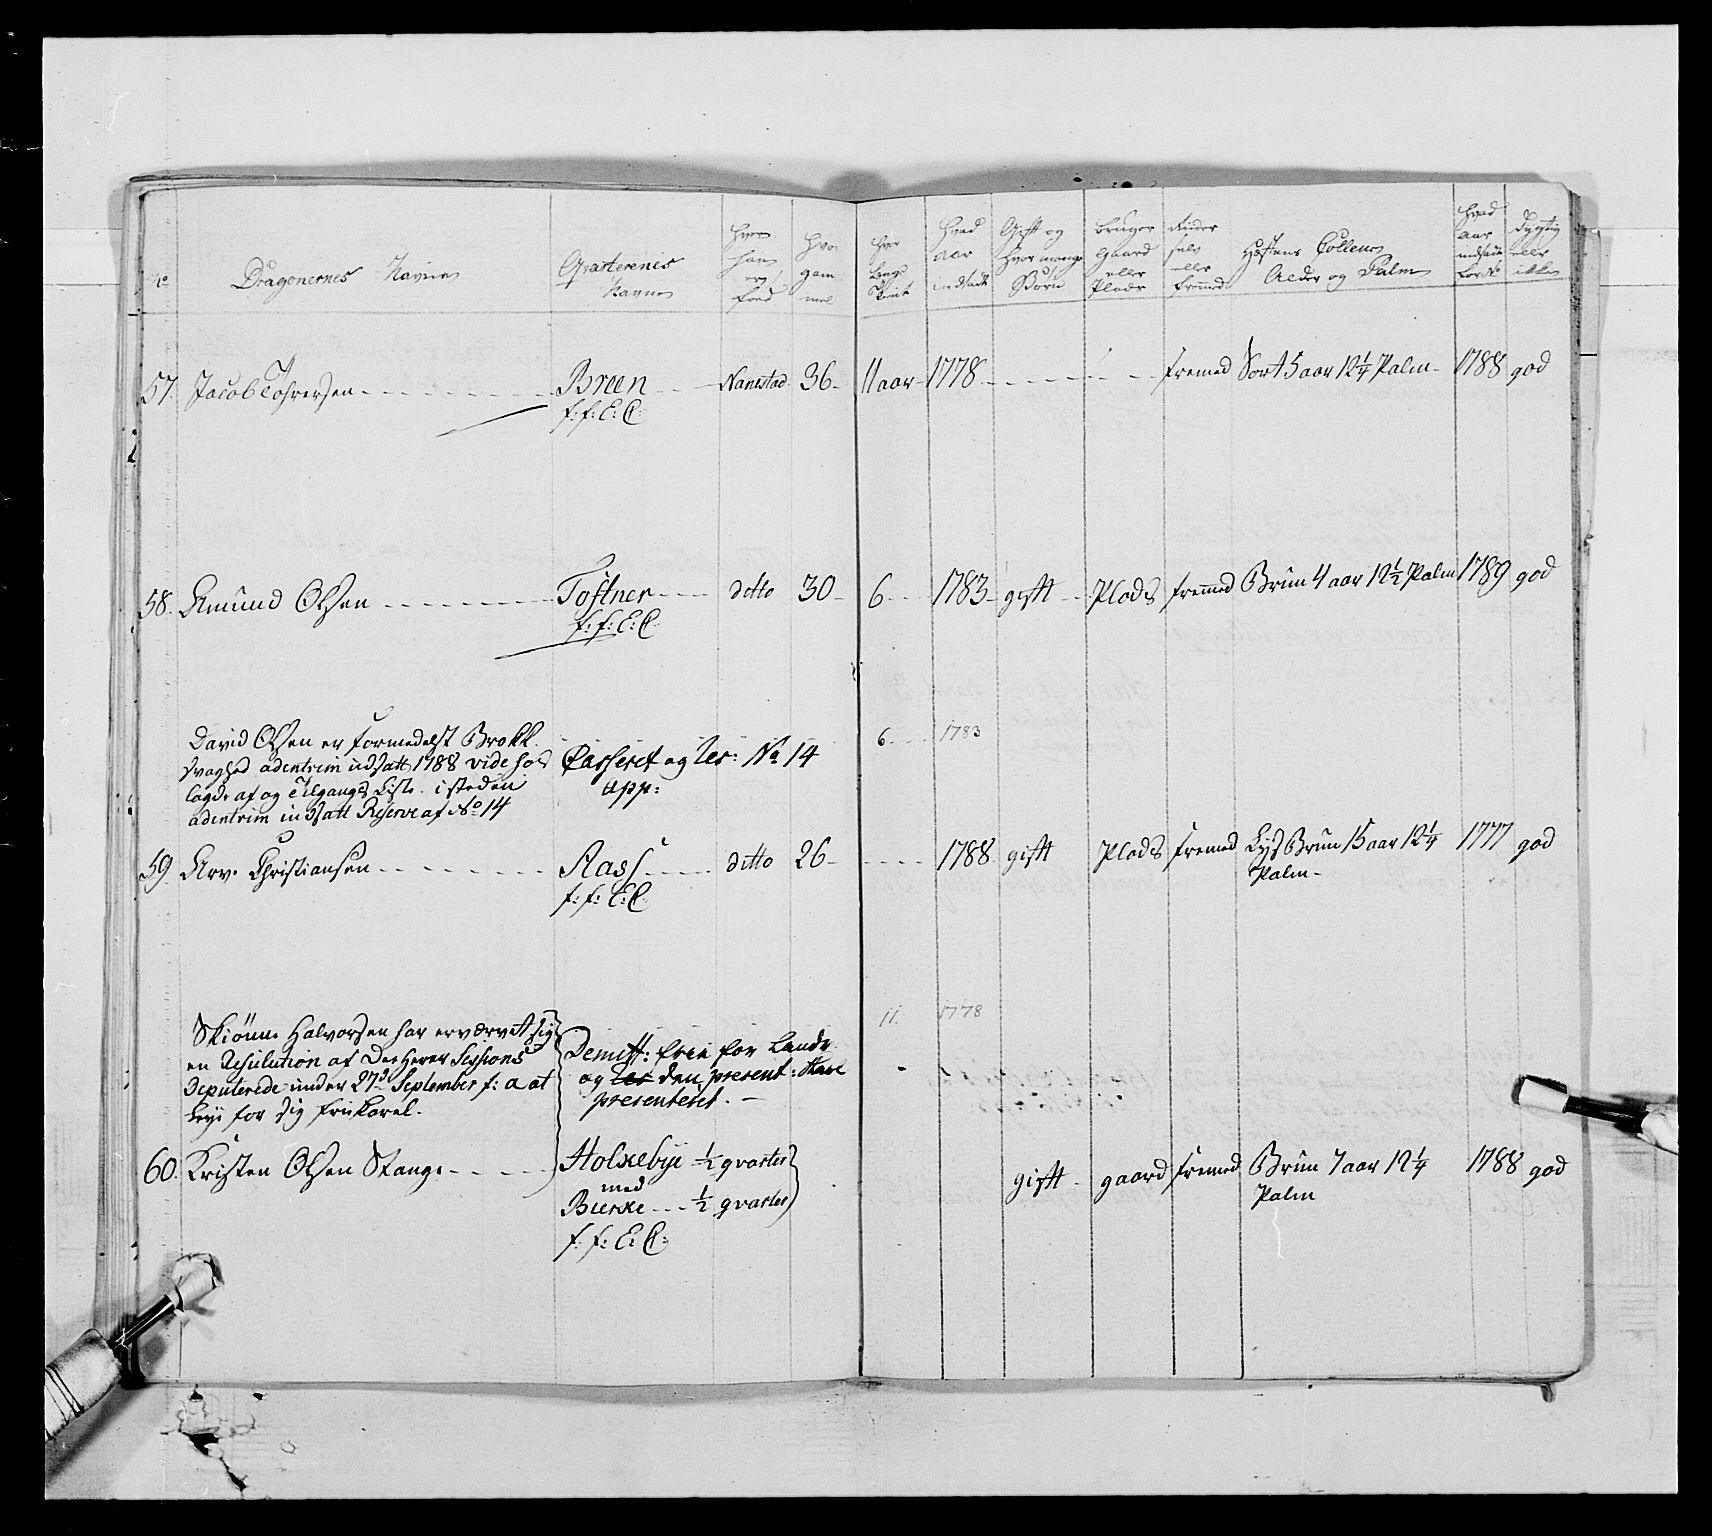 No
Dragonernes Navne
Qvarterenes
Navne
hvor
han
er
fød
hvor
gam
mel
hvor
længe
tient
hvad
aar
indsadt
Gift og
hvor mange
Børn
bruger
gaard
eller
Plads
Rider
selv
eller
fremed
Hæstens Coullør
Alder og Palm
hvad
aar
indsadt
dygtig
eller
ikke
57. Jacob Tohrersen - - - Breen - - Nanestad 36 - 11 aar - 1778 - - - - fremed Sort 5 aar 12 1/4 Palm - 1788 god
f: f: E: C:
58. Amund Olsen - - - Tostner - - ditto 30 - 6 - - 1783 - gift - Plads fremed Brun 4 aar 12 1/2 Palm 1789 god
f: f: E: C:
David Olsen er formedelst Brokk
svaghed adentrim udsatt 1788 vide hos
lagde af og Tilgangs Liste. i steden
adentrim indsatt Reserve af No 14
Passeret og Res: No 14
app:
6 - - 1783
59. Arv. Christiansen - - - Aass - - ditto 26 - - - - 1788 gift Plads fremed Lys Brun 15 aar 12 1/4 1777 god
Palm -
f: f: E: C:
Skiønne Halvorsen har erværvet sig
en Resulution af Dee Herrer Sessions
Deputerede under 27d September f: a at
Leye for sig frie Karel.
Demitt: free for Lande
og den present: Karl
presenteret. -
11. 1778
60. Kristen Olsen Stange - - - Holxebye 1/2 qvarter
med
Bierke - - 1/2 qvarter
f: f: E: C:
gift - gaard fremed Brun 7 aar 12 1/4 1788 god
Palm